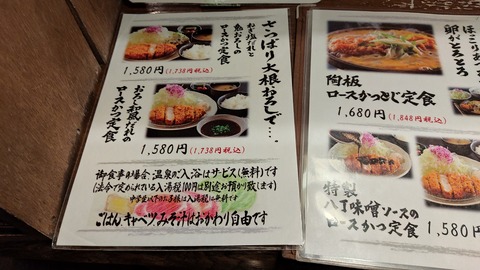 さっぱり大根おろしで…。
ねぎ塩だれと
鬼おろしの
ロースかつ定食
1,580円(1,738円税込)
おろし和風だれの
ロースかつ定食
1,580円(1,738円税込)
御食事の場合、温泉の入浴はサービス(無料)です
(法令で定められている入湯税100円は別途お預かり致します)
中学生以下のお子様は入湯税は無料です
ごはん、キャベツ、みそ汁はおかわり自由です
卵がとろとろ
陶板
ロースかつとじ定食
1,680円(1,848円税込)
特製
八丁味噌ソースの
ロースかつ定食
1,580円